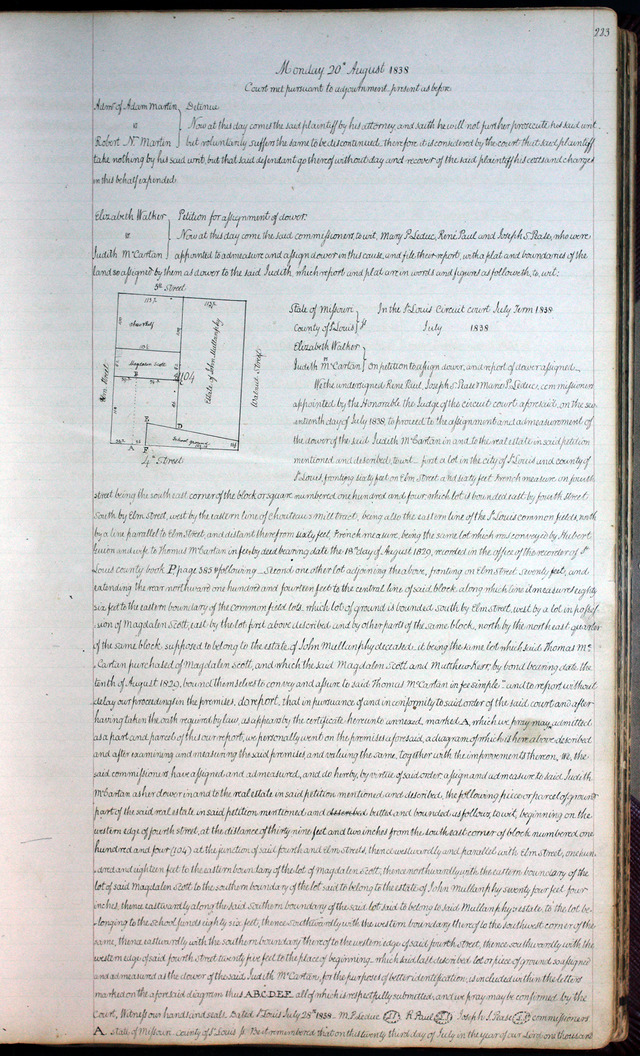 223
Monday 20th August 1838
Court met pursuant to adjournment, present as before
Admr of Adam Martin } Detinue
vs Now at this day comes the said plaintiff by his attorney, and saith he will not further prosecute his said writ
Robert N. Martin but voluntarily suffers the same to be discontinued, therefore it is considered by the court that said plaintiff
take nothing by his said writ, but that said defendant go thereof without day and recover of the said plaintiff his costs and charges
in this behalf expended
Elizabeth Walker } Petition for assignment of dower.
vs Now at this day come the said commissioners, to wit, Mary P. Leduc, René Paul and Joseph S. Pease, who were
Judith McCartan appointed to admeasure and assign dower in this cause, and file their report, with a plat and boundaries of the
land so assigned by them as dower to the said Judith, which report and plat are in words and figures as followeth, to wit:
5th Street
Magdalen Scott
104
Estate of John Mullanphy
Walnut Street
Elm Street
School ground
A
B
D
E
F
4th Street
State of Missouri In the St Louis Circuit court July Term 1838
County of St Louis } ss July 1838
Elizabeth Walker
vs
Judith McCartan } on petition to assign dower, and report of dower assigned
We the undersigned René Paul, Joseph S. Pease Marie P. Leduc, commissioners
appointed by the Honorable the Judge of the circuit court aforesaid, on the sev
enteenth day of July 1838, to proceed to the assignment and admeasurement of
the dower of the said Judith McCartan in and to the real estate in said petition
mentioned and described, to wit - first a lot in the city of St Louis and county of
St Louis, fronting sixty feet on Elm Street and sixty feet French measure on fourth
street being the south east corner of the block or square numbered one hundred and four which lot is bounded east by fourth Street
South by Elm street, west by the eastern line of Chouteau's mill tract, being also the eastern line of the St Louis common fields, north
by a line parallel to Elm Street, and distant therefrom sixty feet, French measure, being the same lot which was conveyed by Hubert
Guion and wife to Thomas McCartan in fee by deed bearing date the 18th day of August 1829, recorded in the office of the recorder of St
Louis county book P, page 385 & following - Second one other lot adjoining the above, fronting on Elm street seventy feet, and
extending the rear northward one hundred and fourteen feet to the central line of said block, along which line it measures eighty
six feet to the eastern boundary of the common field lots, which lot of ground is bounded south by Elm street, west by a lot in posses
sion of Magdalen Scott, east by the lot first above described and by other parts of the same block, north by the north east quarter
of the same block, supposed to belong to the estate of John Mullanphy deceased, it being the same lot which said Thomas Mc
Cartan purchased of Magdalen Scott, and which the said Magdalen Scott and Matthew Kerr, by bond bearing date the
tenth of August 1829, bound themselves to convey and assure to said Thomas McCartan in fee simple - and to report without
delay our proceedings in the premises, do report, that in pursuance of and in conformity to said order of the said court and after
having taken the oath required by law, as appears by the certificate hereunto annexed, marked A, which we pray may admitted
as a part and parcel of this our report, we personally went on the premises aforesaid, a diagram of which is here above described
and after examining and measuring the said premises, and valuing the same, together with the improvements thereon, We, the
said commissioners have assigned and admeasured, and do hereby by virtue of said order assign and admeasure to said Judith
McCartan as her dower in and to the real estate in said petition mentioned and described, the following piece or parcel of ground
part of the said real estate in said petition mentioned and described butted and bounded as follows, to wit, beginning on the
western edge of fourth street, at the distance of thirty nine feet and two inches from the south east corner of block numbered one
hundred and four (104) at the junction of said fourth and Elm streets, thence westwardly and parallel with Elm street, one hun
dred and eighteen feet to the eastern boundary of the lot of Magdalen Scott, thence northwardly with the eastern boundary of the
lot of said Magdalen Scott to the southern boundary of the lot said to belong to the estate of John Mullanphy seventy four feet four
inches, thence eastwardly along the said southern boundary of the said lot said to belong to said Mullanphy's estate, to the lot be
-longing to the school funds eighty six feet, thence southwardly with the western boundary thereof to the southwest corner of the
same, thence eastwardly with the southern boundary thereof to the western edge of said fourth street, thence southwardly with the
western edge of said fourth street twenty five feet to the place of beginning. which said last described lot or piece of ground so assigned
and admeasured as the dower of the said Judith McCartan, for the purposes of better identification, is included within the letters
marked on the aforesaid diagram thus A.B.C.D.E.F. all of which is respectfully submitted, and we pray may be confirmed by the
Court, Witness our hands and seals. Dated St Louis July 28th 1838. M. P. Leduc R. Paul Joseph S. Pease commissioners
A State of Missouri County of St Louis ss Be it remembered that on this twenty third day of July in the year of our Lord one thousand